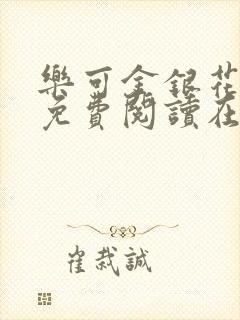 樂可金銀花
免費閱讀在
崔栽誠